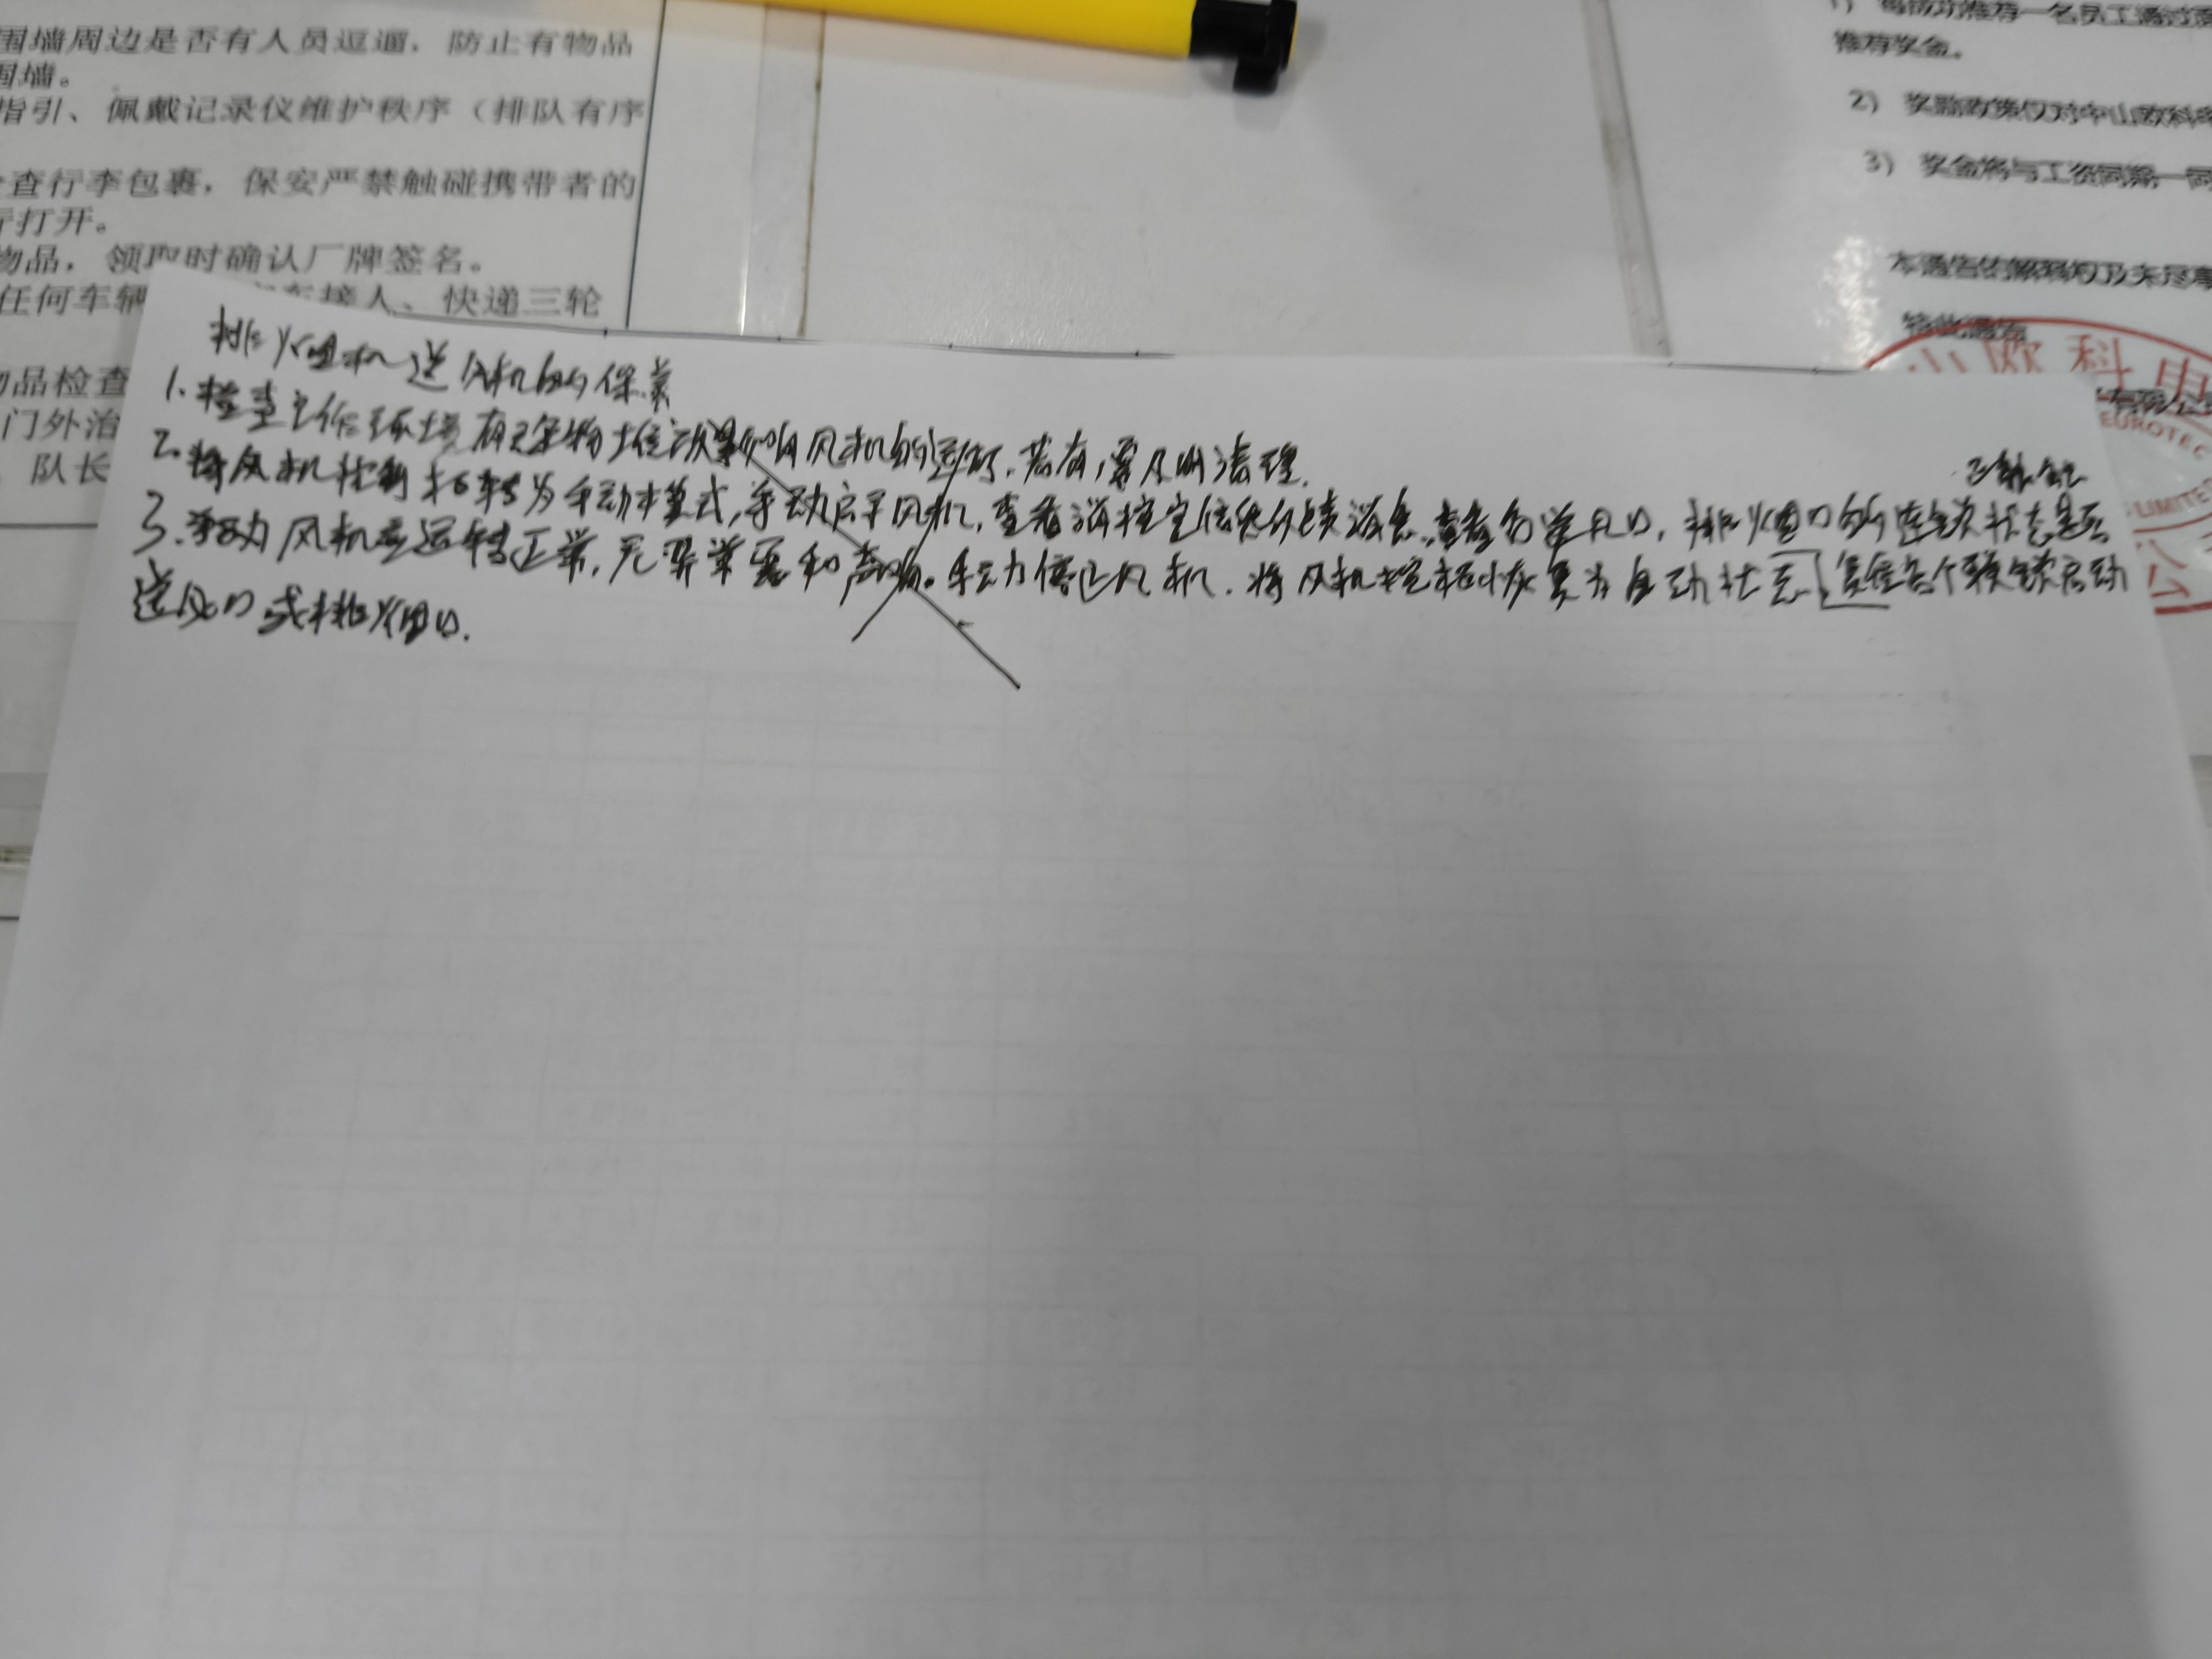 围墙周边是否有人员逗遛，防止有物品
围墙。
指引、佩戴记录仪维护秩序（排队有序
查行李包裹，保安严禁触碰携带者的
行打开。
物品，领取时确认厂牌签名。
任何车辆 接人、快递三轮
物品检查
门外治
队长
1） 每成功推荐一名员工通过
推荐奖金。
2） 奖励政策仅对中山欧科
3） 奖金将与工资同期一同
本通告的解释权及未尽事
特此通告
欧科电
EUROTEC
LIMITED
排烟机送风机的保养
1. 检查工作环境有无杂物堆积影响风机的运行，若有，需及时清理。
2. 将风机控制柜转为手动模式，手动启动风机，查看消控室信息反馈消息，查看各送风口，排烟口的连锁状态是否
3. 手动风机应运转正常，无异常震和声响。手动停止风机，将风机控柜恢复为自动状态 各个联锁启动
送风口或排烟口.